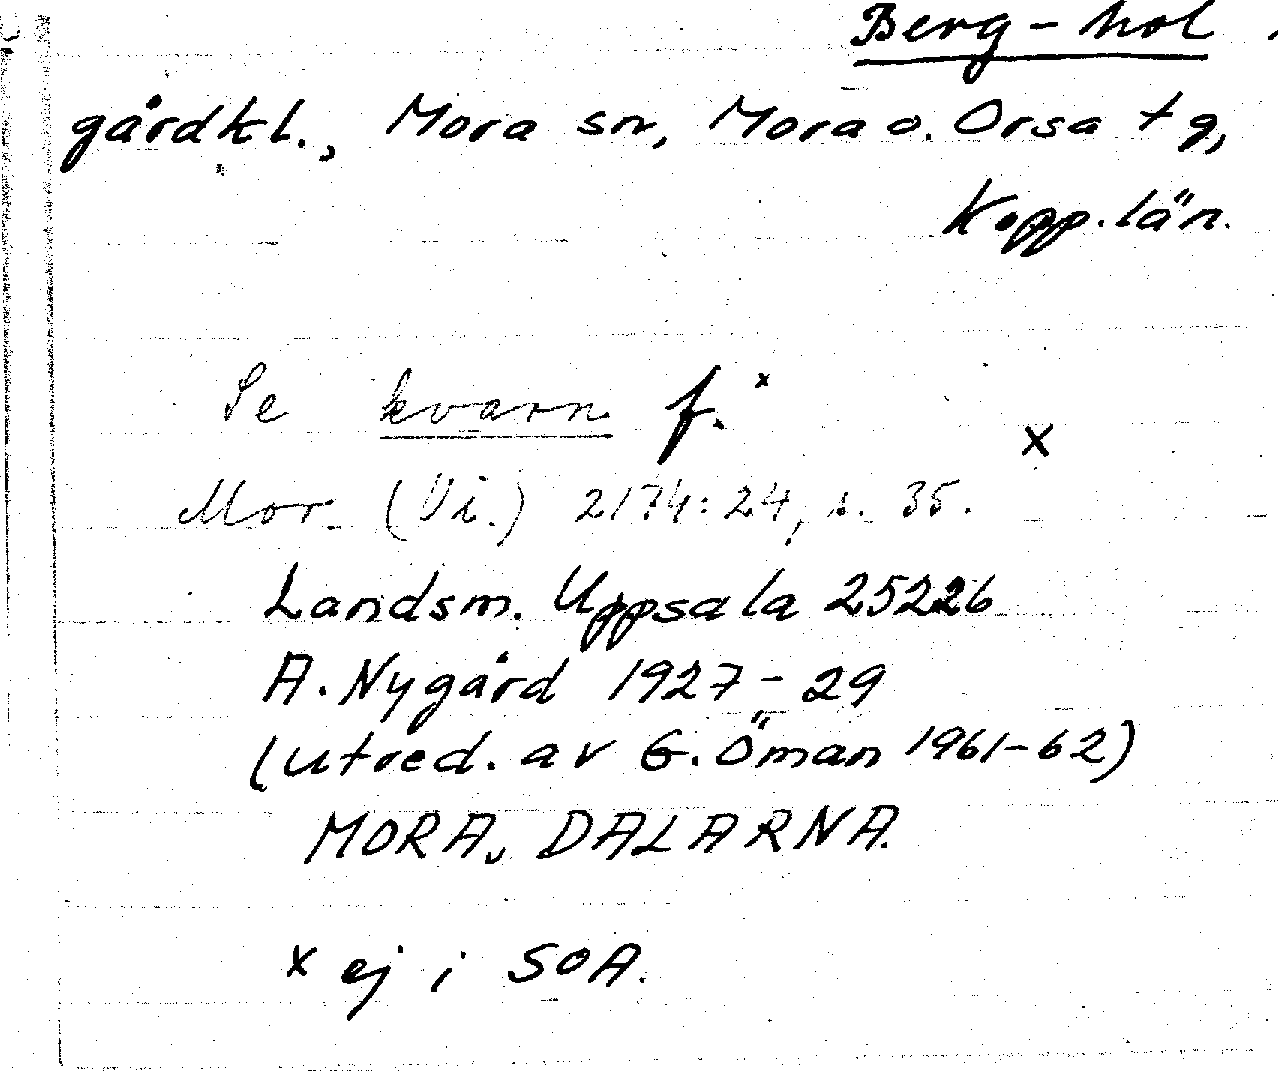 Berg-hol
gårdkl., Mora sn, Mora o. Orsa tg,
Kopp.län.
Se kvarn f.x
x
Mor. (Vi.) 2174:24, s. 35.
Landsm. Uppsala 25226
A. Nygård 1927-29
(utred. av G. Öman 1961-62)
MORA, DALARNA.
x ej i SOA.